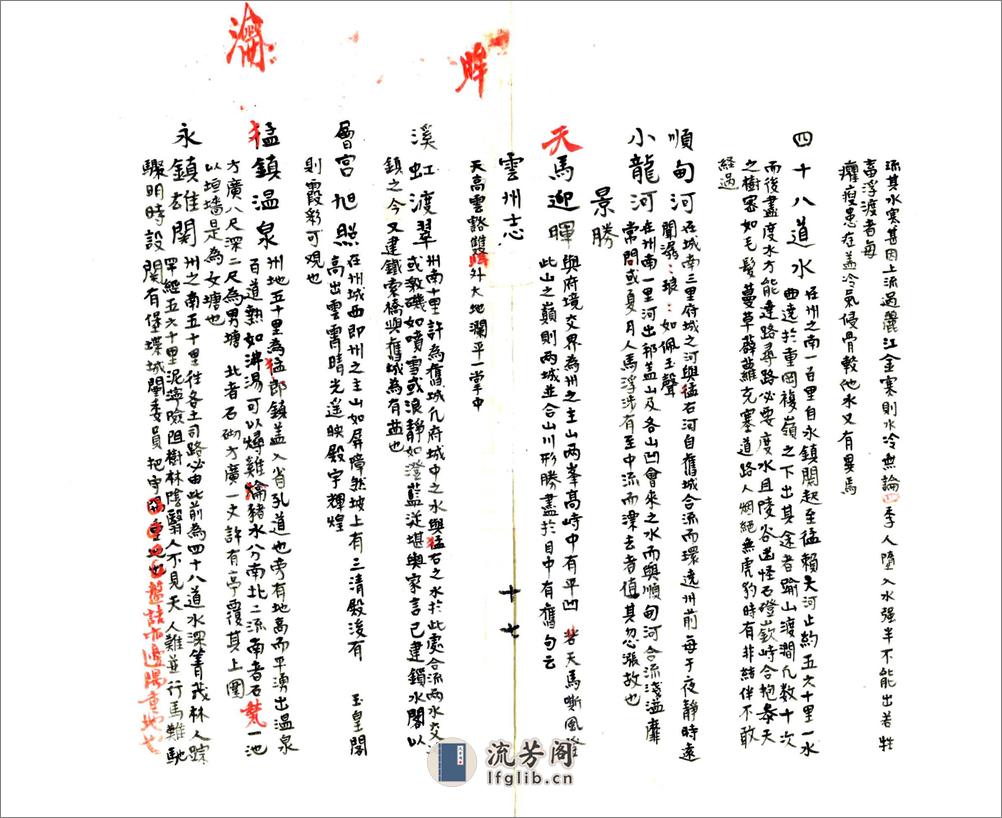 琉其水寒甚因上流過麗江金寒則水冷無論四季人墮入水強半不能出若牲
畜浮渡者每
癱瘦患在盖冷氣侵骨較他水又有異焉
四十八道水 在州之南一百里自永鎮關起至猛賴大河止約五六十里一水
曲達於重岡複嶺之下出其途者踰山渡澗凡數十次
而後盡度水方能達路尋路必要度水且陵谷幽怪石磴嶔崎合抱參天
之樹密如毛髮蔓草薜蘿充塞道路人烟絕無虎豹時有非結伴不敢
經過
順甸河 在城南三里府城之河與猛右河自舊城合流而環遶州前每于夜靜時遠
聞潺:琅:如佩玉聲
小龍河 在州南一里河出祁盖山及各山凹會來之水而與順甸河合流淺溢靡
常問或夏月人馬浮涉有至中流而漂去者值其忽漲故也
景勝
天馬迎暉 與府境交界為州之主山兩峯高峙中有平凹若天馬嘶風登
此山之巔則兩城並合山川形勝盡於目中有舊句云
雲州志
十七
天高雲豁雙眸外大地瀾平一掌中
眸
溪虹渡翠 州南十里許為舊城凡府城中之水與猛右之水於此處合流兩水交
或敦磯如噴雪或浪靜如澄藍従堪輿家言己建鎖水閣以
鎮之今又建鐵索橋與舊城為有益也
層宮旭照 在州城西即州之主山如屏障然坡上有三清殿後有 玉皇閣
高出雲霄晴光遥映殿宇輝煌
則霞彩可觀也
猛鎮温泉 州地五十里為猛郎鎮盖入省孔道也旁有地高而平湧出温泉
百道熱如沸湯可以燖雞爚豬水分南北二流南者石甃一池
方廣八尺深二尺為男塘 北者石砌方廣一丈許有亭覆其上圍
以垣墻是為女塘也
永鎮雄關 州之南五十里往各土司路必由此前為四十八道水深箐茂林人踪
罕經五六十里泥濘險阻樹林陰翳人不見天人難並行馬難馳
驟明時設關有堡堞城閘委員把守 盤詰亦邊陽重地也
瀹
流芳阁
lfglib.cn